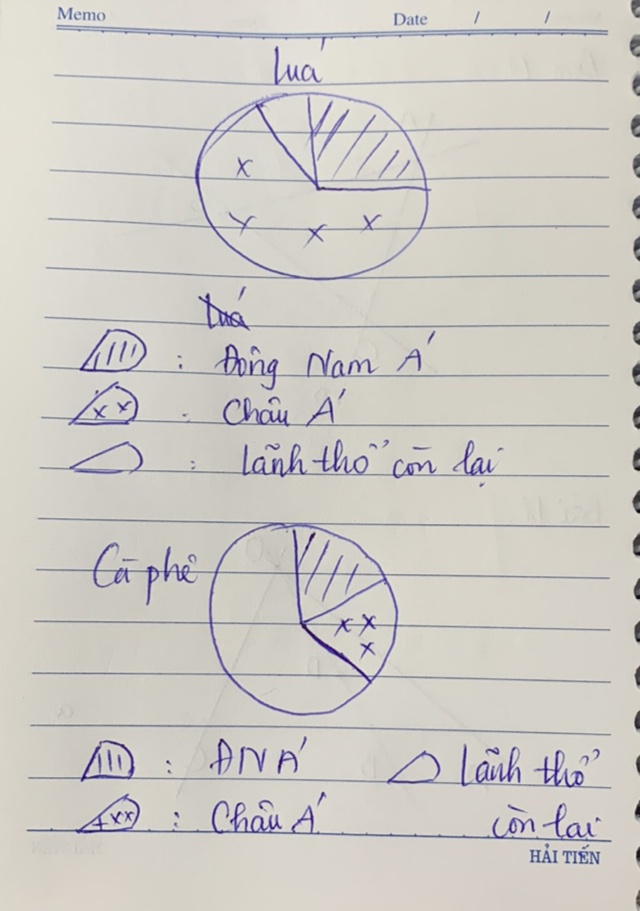 Memo Date / /
Luá
Luá
: Đông Nam Á
: Châu Á
: Lãnh thổ còn lại
Cà phê
: ĐNÁ
Lãnh thổ
: Châu Á
còn lại
HẢI TIẾN